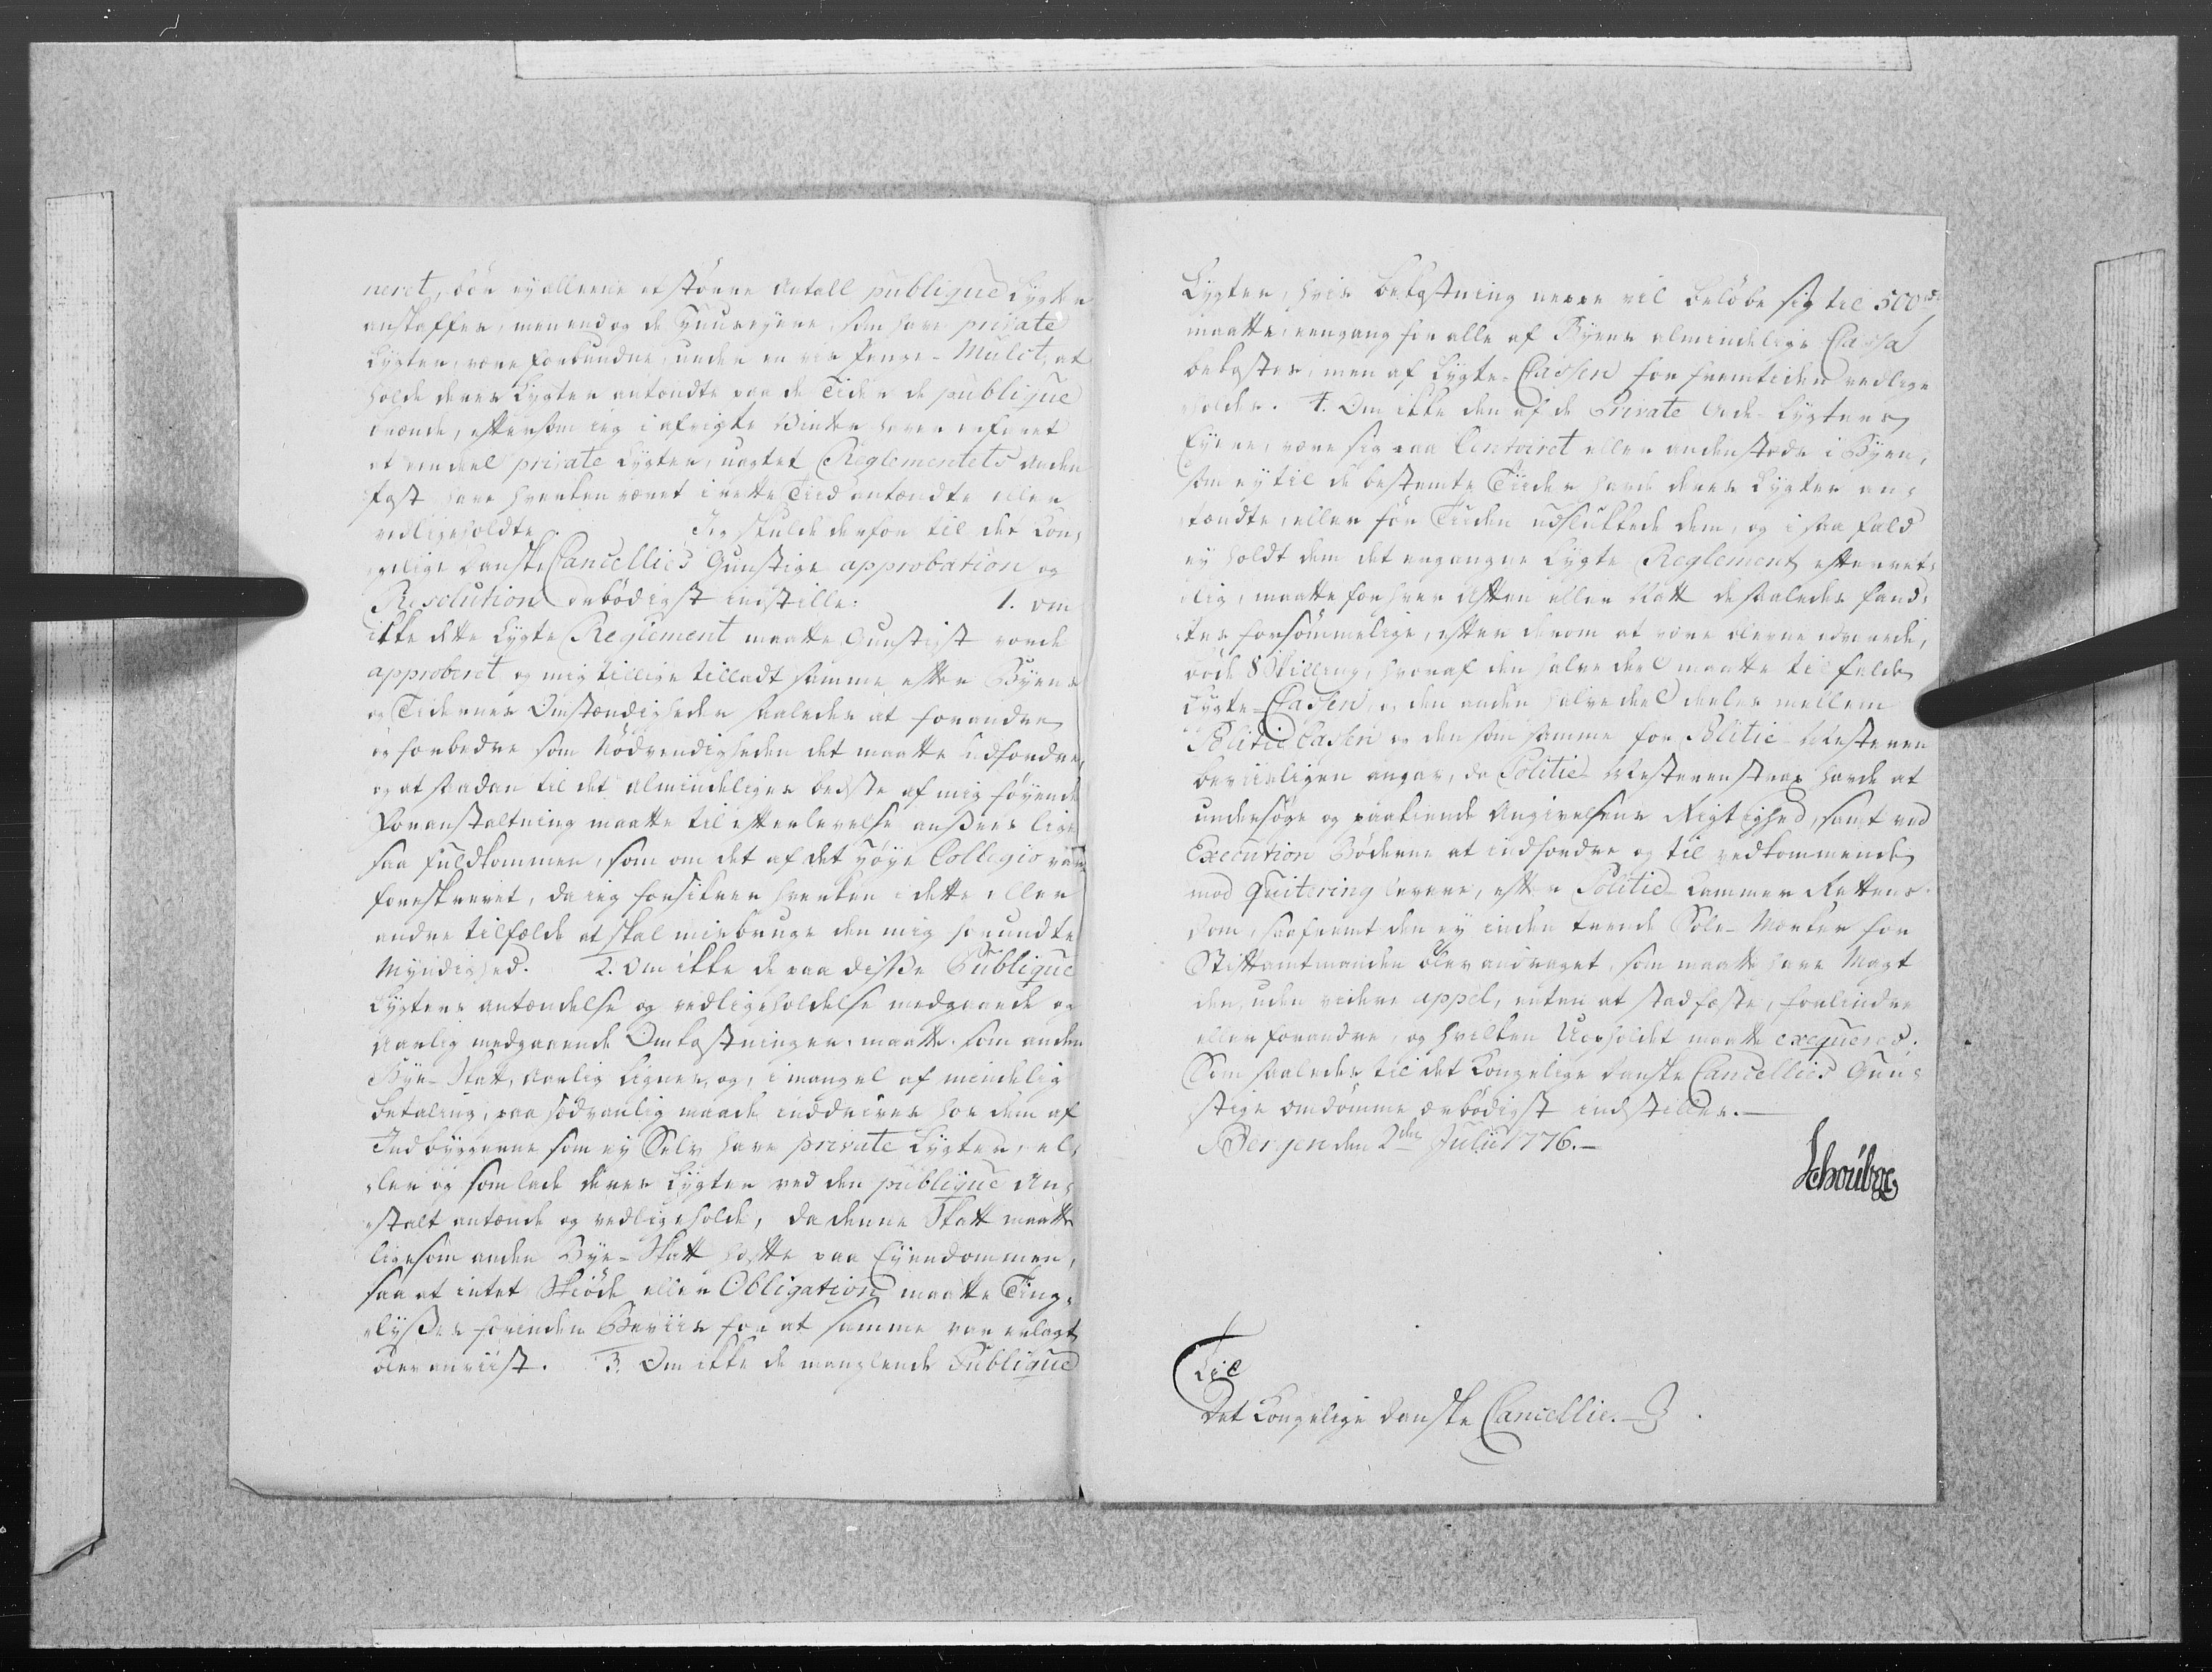 neret, bör ey alleene et större Antall publique Lygter
anskaffes, men endog de Huus eyere, som have private
Lygter, være forbundne, under en vis Penge-Mulct, at
holde deres Lygter antændte paa de Tider de publique
brænde, eftersom ieg i afvigte Winter haver erfaret
at endeel private Lygter, uagtet Reglementets Anden
Post have hverken været i rette Tiid antændte eller
vedligeholdte. Jeg skulde derfor til det Kon-
gelige Danske Cancellies Gunstige approbation og
Resolution ærbödigst indstille: 1. Om
ikke dette Lygte Reglement maatte Gunstigst vorde
approberet og mig tillige tilladt samme efter Byens
og Tidernes Omstændigheder saaledes at forandre
og forbedre som Nödvendigheden det maatte udfordre,
og at saadan til det almindelige bedste af mig föyende
Foranstaltning maatte til efterlevelse ansees lige
saa fuldkommen, som om det af det höye Collegio var
foreskrevet, da ieg forsikrer hverken i dette eller
andre tilfælde at skal misbruge den mig forundte
Myndighed. 2. Om ikke de paa disse Publique
Lygters antændelse og vedligeholdelse medgaaede og
Aarlig medgaaende Omkostninger, maatte som anden
Bye-Skatt, Aarlig lignes, og, i mangel af mindelig
betaling, paa sædvanlig maade inddrives hos dem af
Indbyggerne som ey Selv have private Lygter, el-
ler og som lade deres Lygter ved den publique An-
stalt antænde og vedligeholde, da denne Skatt maatte
ligesom anden Bye-Skatt hæfte paa Eyendommen,
saa at intet Skiöde eller Obligation maatte Ting-
lyses forinden Beviis for at samme var erlagt
blev anviist. 3. Om ikke de manglende Publique
Lygter, hvis bekostning neppe vil belöbe sig til 500 rd.
maatte eengang for alle af Byens almindelige Cassa
bekostes, men af Lygte-Cassen for fremtiden vedlige
holdes. 4. Om ikke den af de Private Gade-Lygters
Eyere, være sig paa Contoiret eller andenstæds i Byen,
som ey til de bestemte Tiider havde deres Lygter an-
tændte, eller för Tiiden udslukkede dem, og i saa fald
ey holdt dem det engangne Lygte Reglement efterret-
telig, maatte for hver Aften eller Natt de saaledes fand-
tes forsömmelige, efter derom at være bleven advarede,
böde 8 Skilling, hvoraf den halve deel maatte tilfalde
Lygte-Cassen, og den anden halve deel deeles mellem
Politie Casen og den som samme for Politie-Mesteren
beviisligen angav, da Politie-Mesteren strax havde at
undersöge og paakiende Angivelsens Rigtighed, samt ved
Execution Böderne at indfordre og til vedkommende
mod Quitering levere, efter Politie-Kammer Rettens
Dom, saafremt den ey inden trende Söle-Mærker for
Stiftamtmanden blev andraget, som maatte have Magt
den, uden videre appel, enten at stadfæste, forlindre
eller forandre, og hvilken Uopholdet maatte exequeres.
Som saaledes til det Kongelige Danske Cancellies Gun-
stige omdömme ærbödigst indstilles.—
Bergen den 2den Julii 1776.—
Schouboe
Til
Det Kongelige Danske Cancellie.